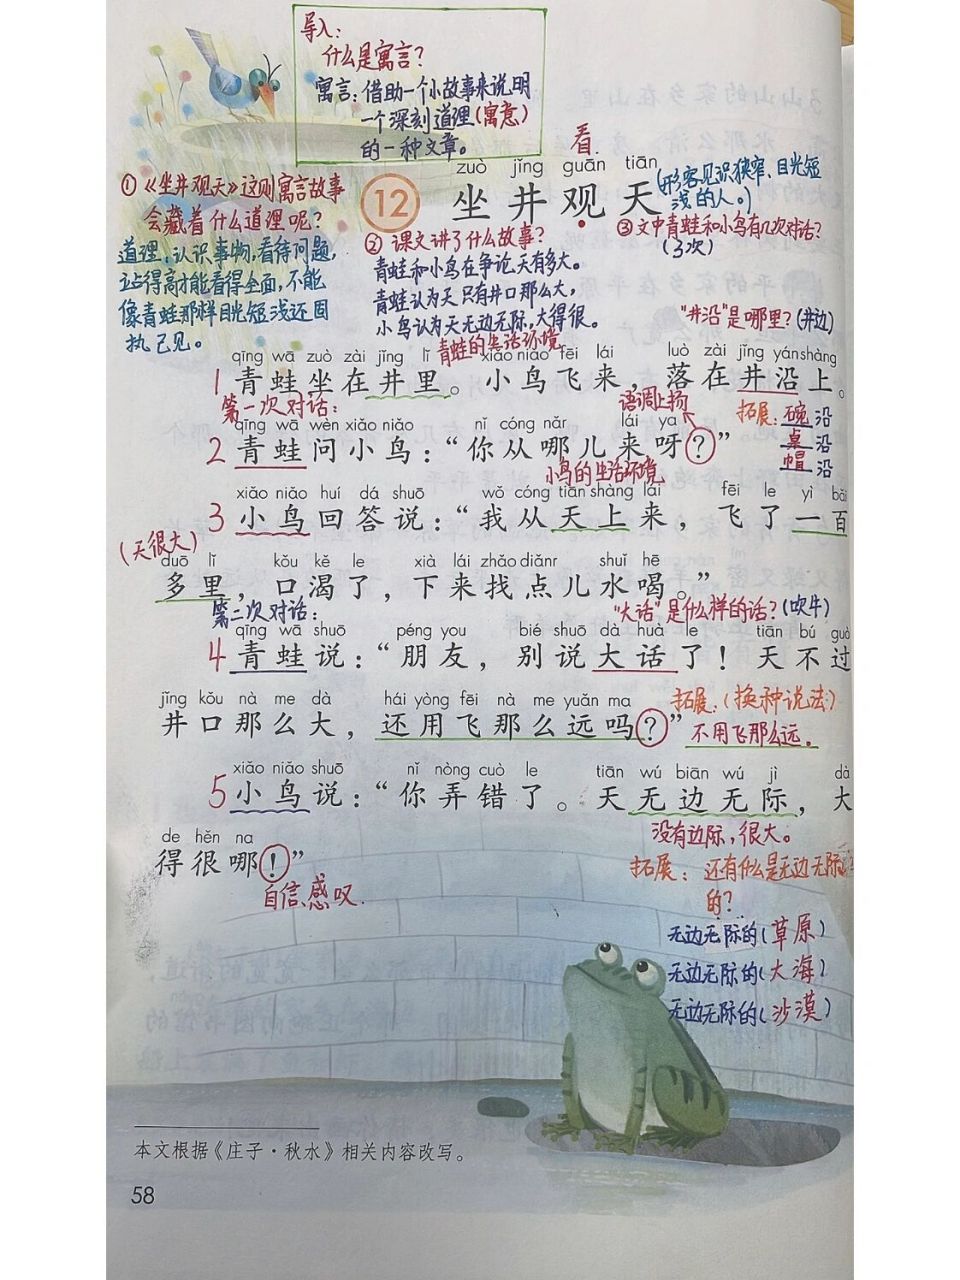 导入:
什么是寓言?
寓言:借助一个小故事来说明
一个深刻道理(寓意)
的一种文章。
看
zuò jǐng guān tiān
12 坐井观天
(形容见识狭窄,目光短
浅的人。)
①《坐井观天》这则寓言故事
会藏着什么道理呢?
道理:认识事物,看待问题,
站得高才能看得全面,不能
像青蛙那样目光短浅还固
执己见。
② 课文讲了什么故事?
青蛙和小鸟在争论天有多大。
青蛙认为天只有井口那么大,
小鸟认为天无边无际,大得很。
③文中青蛙和小鸟有几次对话?
(3次)
"井沿"是哪里?(井边)
青蛙的生活环境
qīng wā zuò zài jǐng lǐ xiǎo niǎo fēi lái luò zài jǐng yán shàng
1 青蛙坐在井里。小鸟飞来,落在井沿上。
第一次对话:
语调上扬
拓展:碗沿
桌沿
帽沿
qīng wā wèn xiǎo niǎo nǐ cóng nǎr lái ya
2 青蛙问小鸟:“你从哪儿来呀?”
小鸟的生活环境
xiǎo niǎo huí dá shuō wǒ cóng tiān shàng lái fēi le yì bǎi
3 小鸟回答说:“我从天上来,飞了一百
(天很大)
duō lǐ kǒu kě le xià lái zhǎo diǎnr shuǐ hē
多里,口渴了,下来找点儿水喝。”
第二次对话:
"大话"是什么样的话?(吹牛)
qīng wā shuō péng you bié shuō dà huà le tiān bú guò
4 青蛙说:“朋友,别说大话了!天不过
jǐng kǒu nà me dà hái yòng fēi nà me yuǎn ma
井口那么大,还用飞那么远吗?”
拓展:(换种说法)
不用飞那么远。
xiǎo niǎo shuō nǐ nòng cuò le tiān wú biān wú jì dà
5 小鸟说:“你弄错了。天无边无际,大
没有边际,很大。
de hěn na
得很哪!”
自信、感叹.
拓展:还有什么是无边无际
的?
无边无际的(草原)
无边无际的(大海)
无边无际的(沙漠)
本文根据《庄子·秋水》相关内容改写。
58